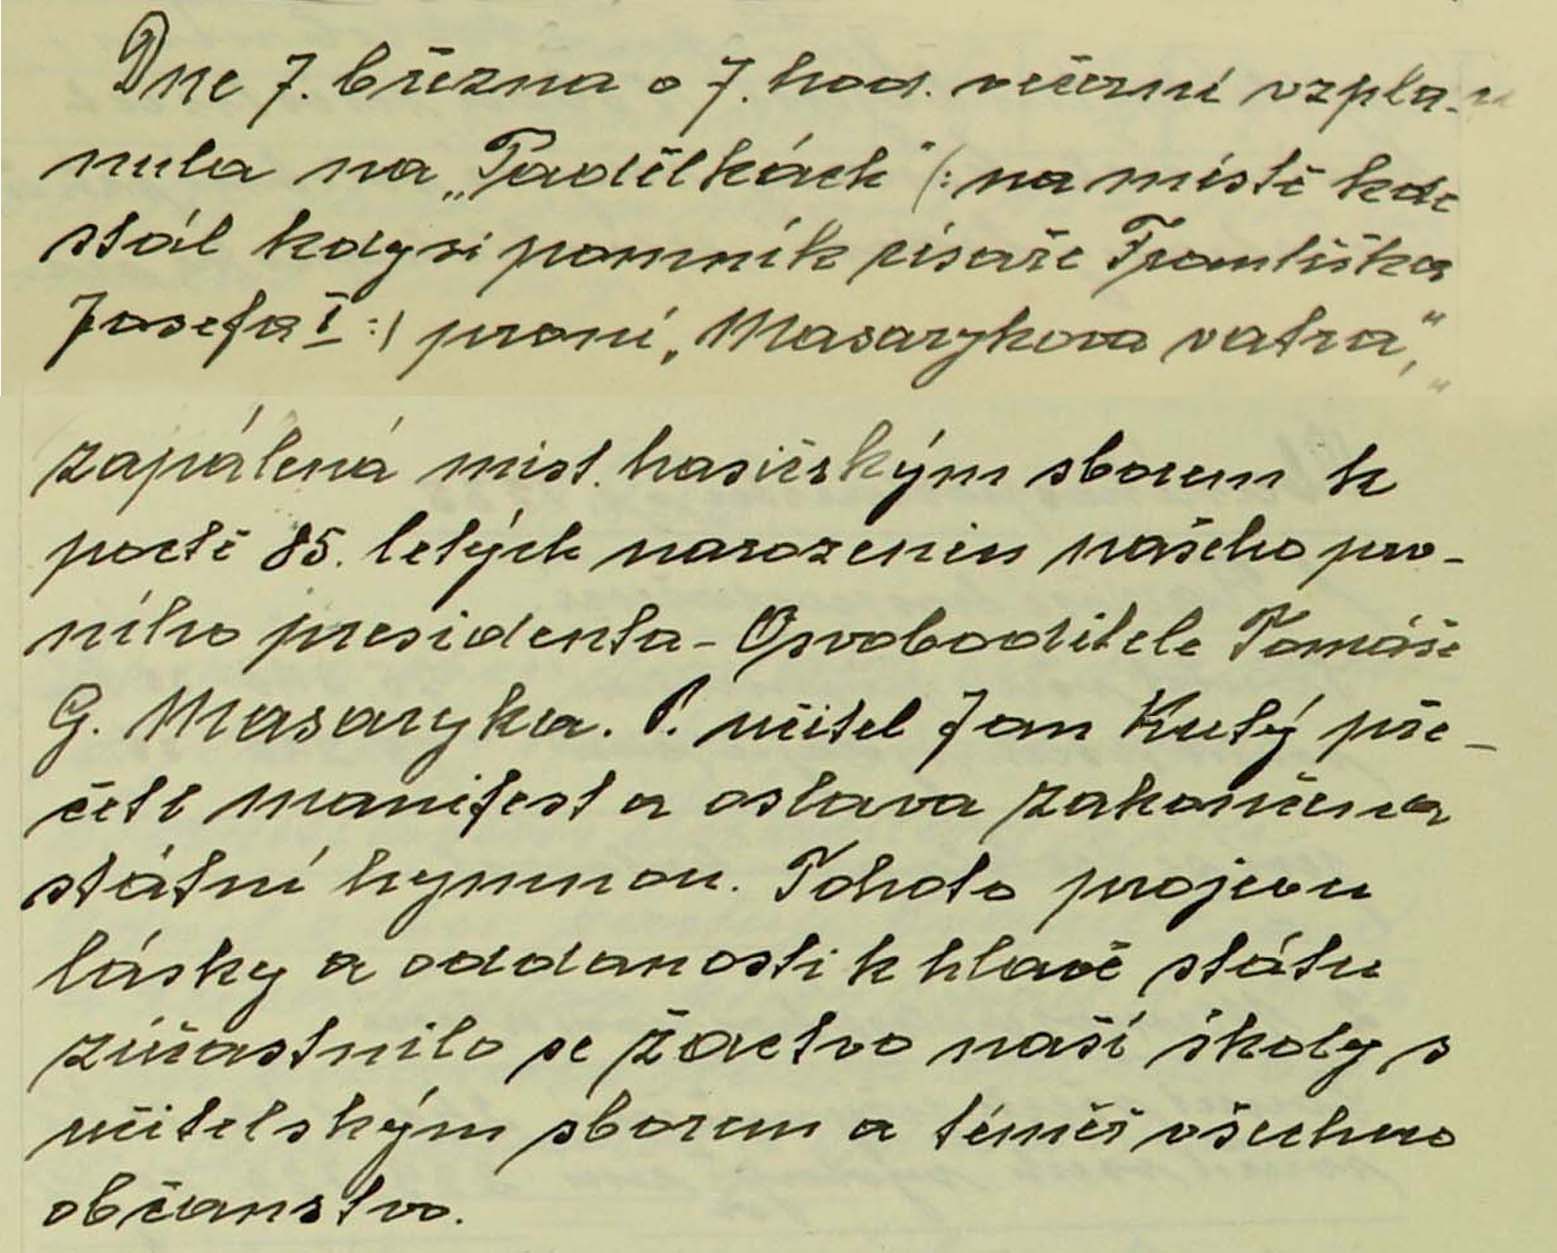 Dne 7. března o 7. hod. večerní vzpla-
nula na „Padělkách" (: na místě kde
stál kdysi pomník císaře Františka
Josefa I :) první „Masarykova vatra",
zapálená míst. hasičským sborem k
poctě 85. letých narozenin našeho prv-
ního presidenta - Osvoboditele Tomáše
G. Masaryka. P. učitel Jan Kutý pře-
četl manifest a oslava zakončena
státní hymnou. Tohoto projevu
lásky a oddanosti k hlavě státu
zúčastnilo se žactvo naší školy s
učitelským sborem a téměř všechno
občanstvo.